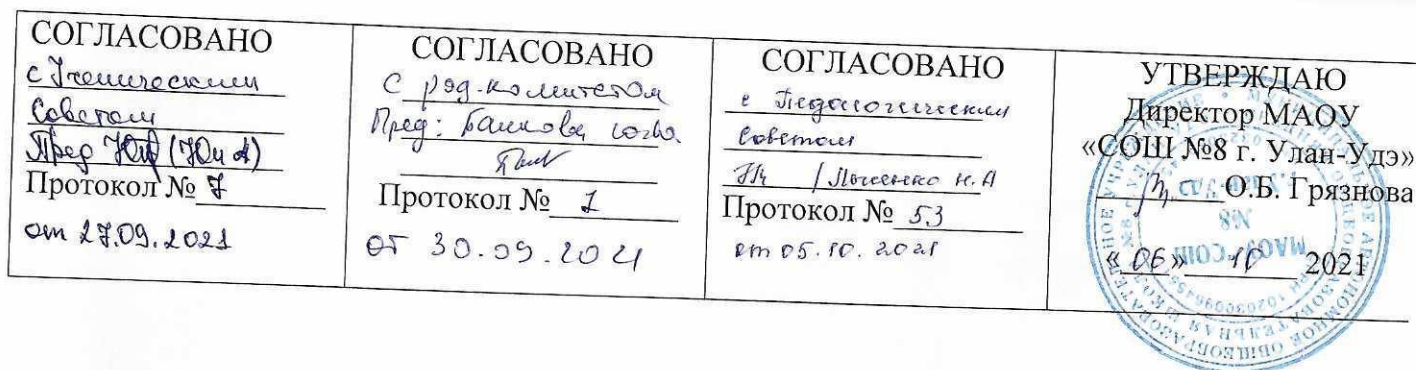 СОГЛАСОВАНО
с Ученическим
Советом
Пред
Протокол № 7
от 27.09.2021
СОГЛАСОВАНО
С род.комитетом
Пред:
Протокол № 1
от 30.09.2021
СОГЛАСОВАНО
с Педагогическим
советом
Н.А
Протокол № 53
от 05.10.2021
УТВЕРЖДАЮ
Директор МАОУ
«СОШ №8 г. Улан-Удэ»
О.Б. Грязнова
«06» 10 2021
МАОУ "СОШ
№8